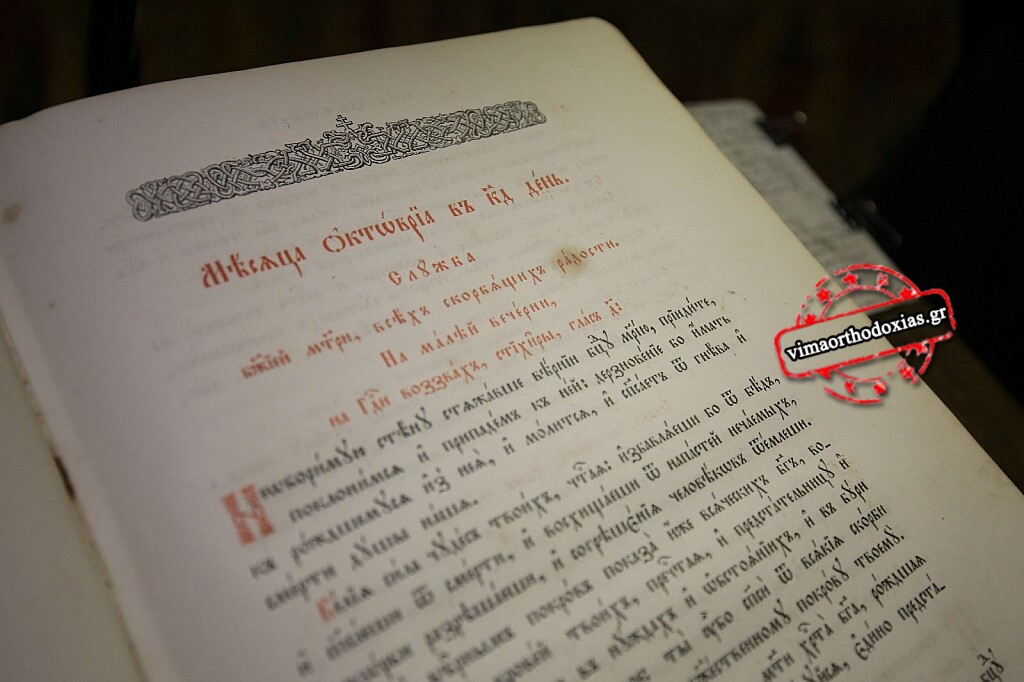 Мⷭ҇ѣсѧца Ѻ҆ктѡ́врїа въ к҃д де́нь.
Слꙋ́жба
бж҃їей мт҃ри, всѣ́хъ скорбѧ́щихъ ра́дости.
На ма́лѣй вече́рни,
на Гдⷭ҇и воззва́хъ, стїхи̑ры, гла́съ д҃:
Необори́мꙋю стѣ́нꙋ стѧжа́вше вѣ́рнїи бцⷣꙋ мр҃і́ю, прїиди́те,
поклони́мсѧ и҆ припаде́мъ къ не́й: дерзнове́нїе бо и҆́мать
къ ро́ждшемꙋсѧ и҆з̾ неѧ̀, и҆ мо́литсѧ, и҆ сп҃са́етъ ѿ гнѣ́ва и҆
сме́рти дꙋ́шы на́шѧ.
Ве́лїѧ си́ла чꙋде́съ твои́хъ, чтⷭ҇аѧ: и҆збавлѧ́еши бо ѿ бѣ́дъ,
и҆ сп҃са́еши ѿ сме́рти, и҆ восхища́еши ѿ напа́стей неча́емыхъ,
разрѣша́еши, и҆ согрѣшє́нїѧ человѣ́кѡвъ ѿе́млеши.
вѣ̑рнымъ покро́въ показа̀ и҆́же всѧ́ческихъ бг҃ъ,
твои́хъ, прчⷭ҇таѧ, и҆ предста́тельницꙋ и҆
въ нꙋ́ждахъ и҆ ѡ҆бстоѧ́нїихъ, и҆ въ бꙋ́ри
ты̀ ᲂу҆̀бо сп҃сѝ ѿ всѧ́кїѧ ско́рби
бж҃е́ственномꙋ покро́вꙋ твоемꙋ̀.
мт҃и хрⷭ҇та̀ бг҃а, ро́ждшаѧ
є҆ди́нꙋ предста́
vimaorthodoxias.gr